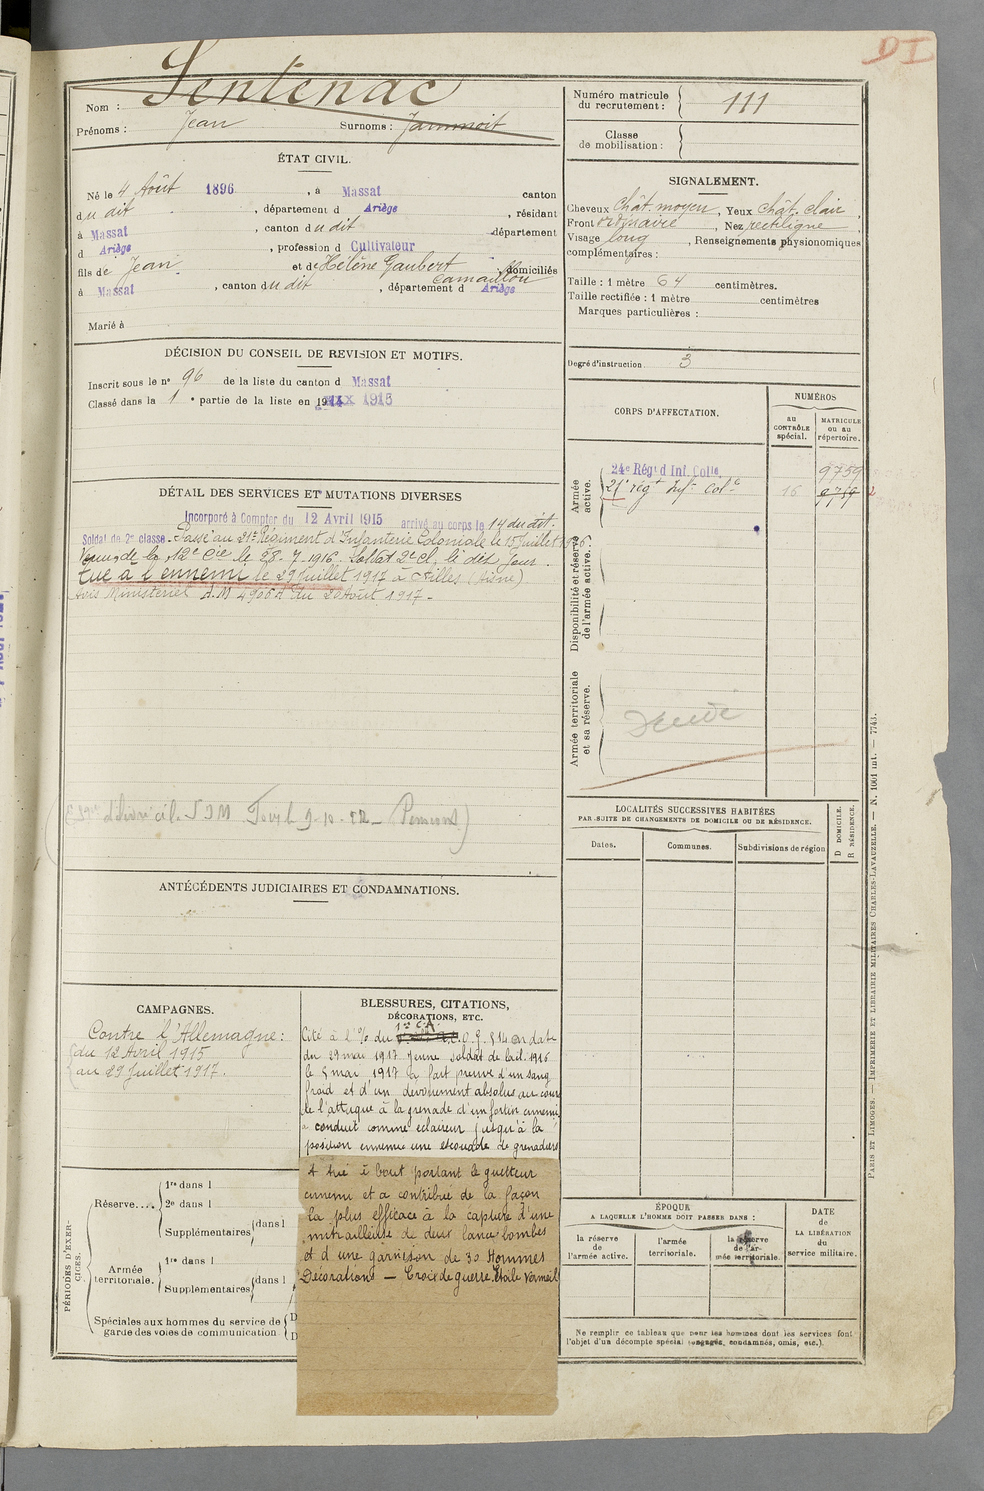 DI
Nom : Sentenac
Prénoms : Jean Surnoms : Jammoit
Numéro matricule du recrutement : 111
Classe de mobilisation :
ÉTAT CIVIL.
Né le 4 Août 1896, à Massat canton
du dit, département d Ariège, résidant
à Massat, canton du dit département
d Ariège, profession d Cultivateur
fils de Jean et de Hélène Gaubert Camaillou domiciliés
à Massat, canton du dit, département d Ariège
Marié à
SIGNALEMENT.
Cheveux Chât. moyen, Yeux chât. clair,
Front ordinaire, Nez rectiligne,
Visage long, Renseignements physionomiques
complémentaires :
Taille : 1 mètre 64 centimètres.
Taille rectifiée : 1 mètre centimètres
Marques particulières :
Degré d'instruction 3
DÉCISION DU CONSEIL DE REVISION ET MOTIFS.
Inscrit sous le n° 96 de la liste du canton d Massat
Classé dans la 1e partie de la liste en 1915
DÉTAIL DES SERVICES ET MUTATIONS DIVERSES
Incorporé à Compter du 12 Avril 1915 arrivé au corps le 14 du dit.
Soldat de 2e classe. Passé au 21e Régiment d'Infanterie Coloniale le 15 Juillet 1916.
Venu de la 12e Cie le 28-7-1916. Soldat 2e cl. le dit jour.
Tué à l'ennemi le 29 Juillet 1917 à Ailles (Aisne)
Avis Ministériel A.M 4906 d du 20 Août 1917.
Pensions)
CORPS D'AFFECTATION.
NUMÉROS
au CONTRÔLE spécial.
MATRICULE ou au répertoire.
Armée active.
24e Régt d Inf. Colle 9759
21e régt Inft Colle 16
Disponibilité et réserve de l'armée active.
Armée territoriale et sa réserve.
LOCALITÉS SUCCESSIVES HABITÉES
PAR SUITE DE CHANGEMENTS DE DOMICILE OU DE RÉSIDENCE.
Dates.
Communes.
Subdivisions de région
D DOMICILE.
R RÉSIDENCE.
ANTÉCÉDENTS JUDICIAIRES ET CONDAMNATIONS.
CAMPAGNES.
Contre l'Allemagne :
du 12 Avril 1915
au 29 Juillet 1917.
BLESSURES, CITATIONS,
DÉCORATIONS, ETC.
1er C.A.
Cité à l'O/ du O.G. 514 en date
du 29 mai 1917 Jeune soldat de la cl. 1916
le 5 mai 1917 a fait preuve d'un sang
froid et d'un dévouement absolus au cours
de l'attaque à la grenade d'un fortin ennemi
a conduit comme eclaireur jusqu'à la
position ennemie une escouade de grenadiers
A tué à bout portant le guetteur
ennemi et a contribué de la façon
la plus efficace à la capture d'une
mitrailleuse de deux lance bombes
et d'une garnison de 30 Hommes
Décorations — Croix de guerre, Etoile Vermeil
PÉRIODES D'EXERCICES.
Réserve....
1re dans l
2e dans l
Supplémentaires dans l
Armée territoriale.
1re dans l
Supplémentaires dans l
Spéciales aux hommes du service de D
garde des voies de communication D
ÉPOQUE
A LAQUELLE L'HOMME DOIT PASSER DANS :
la réserve de l'armée active.
l'armée territoriale.
la réserve de l'armée territoriale.
DATE de LA LIBÉRATION du service militaire.
Ne remplir ce tableau que pour les hommes dont les services font
l'objet d'un décompte spécial (engagés, condamnés, omis, etc.).
PARIS ET LIMOGES. — IMPRIMERIE ET LIBRAIRIE MILITAIRES CHARLES-LAVAUZELLE. — N. 1001 int. — 7743.